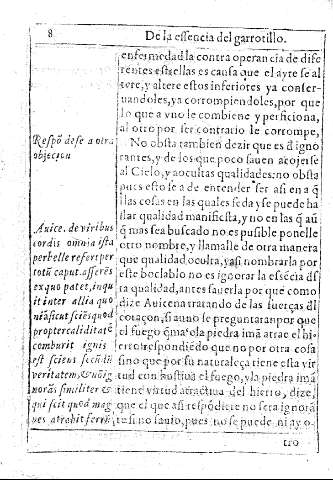 8 De la essencia del garrotillo.
enfermedad la contra operancia de dife
rentes estrellas es causa que el ayre se al
tere, y altere estos inferiores ya conser-
uandoles, ya corrompiendoles, por que
lo que a vno le combiene y perficiona,
al otro por ser contrario le corrompe,
No obsta tambien dezir que es d̃ igno
rantes, y de los que poco sauen acojerse
al Cielo, y a ocultas qualidades: no obsta
pues esto se a de entender ser asi en a q̃
llas cosas en las quales se da y se puede ha
llar qualidad manifiesta, y no en las q̃ aũ
q̃ mas sea buscado no es pusible ponelle
otro nombre, y llamalle de otra manera
que qualidad oculta, y asi nombrarla por
este boclablo no es ignorar la essẽcia dis
ta qualidad, antes sauerla por que como
dize Auicena tratando de las fuerças dl
coraçon, si a uno se preguntara por que
el fuego q̃ma o la piedra imã atrae el hi-
erro respondiẽdo que no por otra cosa
sino que por su naturaleça tiene esta vir
tud con bustiua el fuego, y la piedra imã
tiene virtud atractiua del hierro, dize,
que el que asi respõdiere no sera ignorã
te si no sauio, pues no se puede ni ay o-
tro
Respõ dese a otra
objection
Auice. de viribus
cordis omnia ista
perbelle refert per
totũ caput. asserẽs
ex quo patet, inqu
it inter allia quo
niã sicut sciẽs quod
propter caliditatẽ
comburit ignis
est sciens secũdũ
veritatem, & nõ ig
norãs similiter &
qui scit quod mag
nes atrahit ferrũ